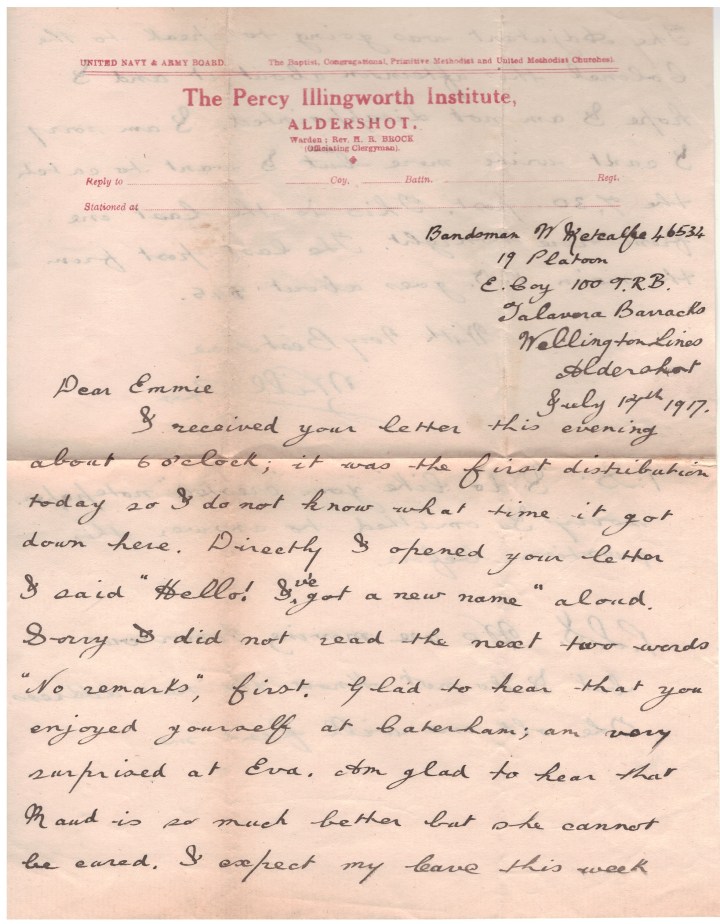 UNITED NAVY & ARMY BOARD. The Baptist, Congregational, Primitive Methodist and United Methodist Churches).
The Percy Illingworth Institute,
ALDERSHOT.
Warden: Rev. H. R. BROCK
(Officiating Clergyman).
Reply to Coy. Battn. Regt.
Stationed at
Bandsman W Metcalfe 46534
19 Platoon
E. Coy 100 T.R.B.
Talavera Barracks
Wellington Lines
Aldershot
July 1917.
Dear Emmie
I received your letter this evening
about 6 o'clock; it was the first distribution
today so I do not know what time it got
down here. Directly I opened your letter
I said "Hello! I've got a new name" aloud.
Sorry I did not read the next two words
"No remarks", first. Glad to hear that you
enjoyed yourself at Caterham; am very
surprised at Eva. Am glad to hear that
Maud is so much better but she cannot
be cured. I expect my leave this week